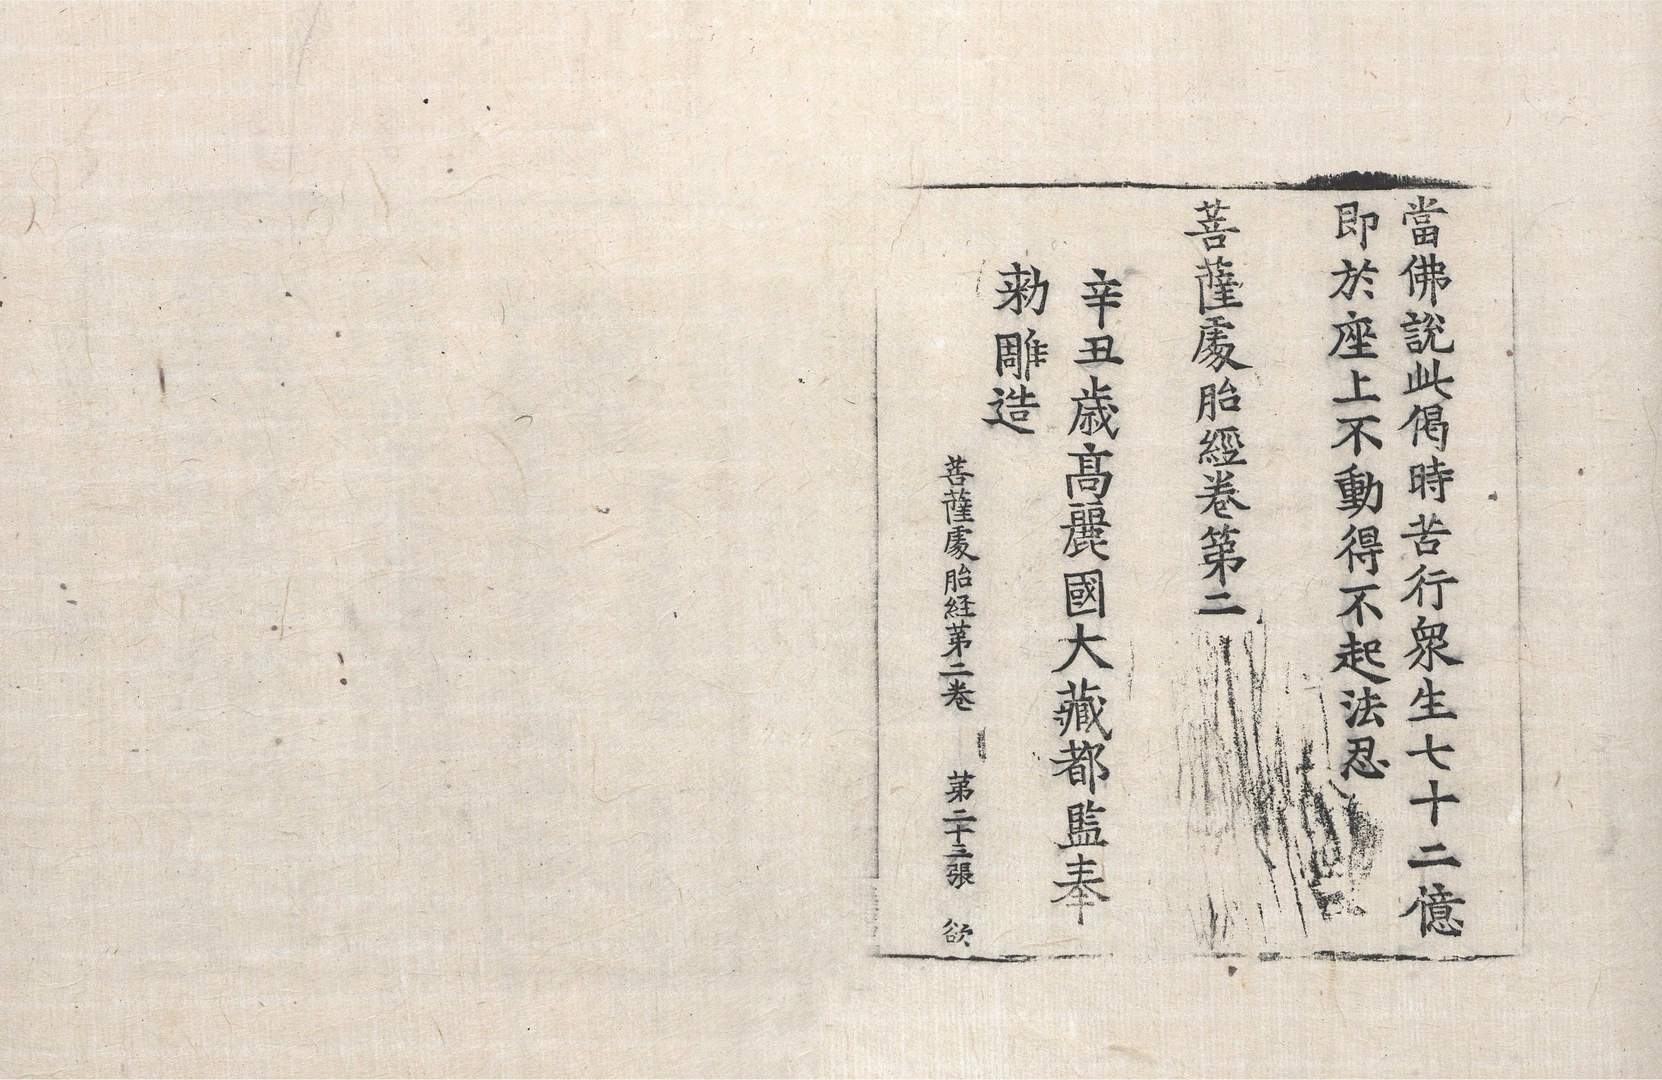 當佛說此偈時苦行衆生七十二億
即於座上不動得不起法忍
菩薩處胎經卷第二
辛丑歲高麗國大藏都監奉
勑雕造
菩薩處胎経第二卷 第二十三張 欲